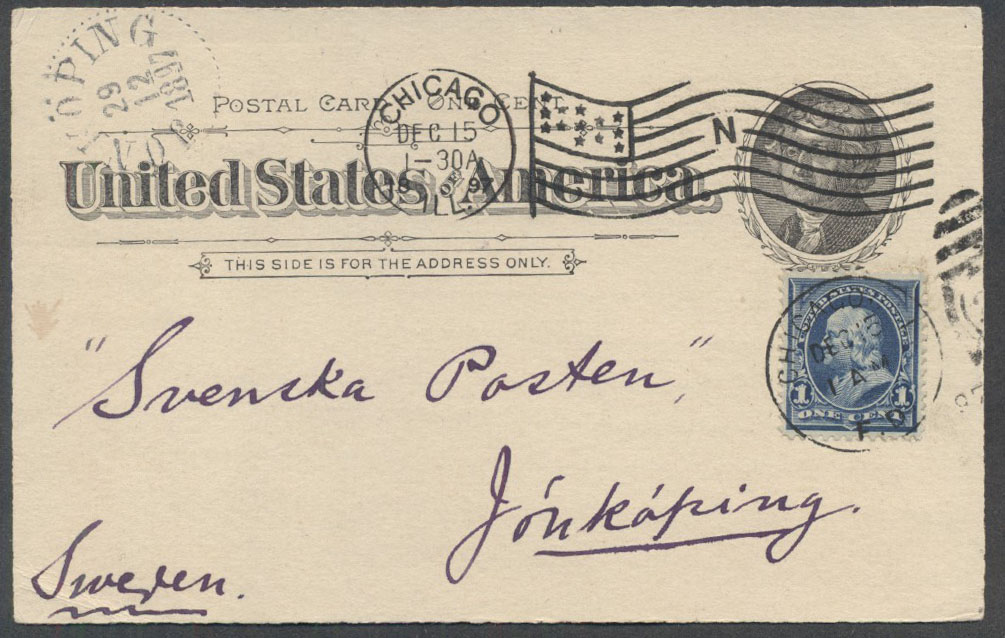 KÖPING
29
12
1897
POSTAL CARD ONE CENT.
United States of America.
THIS SIDE IS FOR THE ADDRESS ONLY.
CHICAGO
DEC 15
1-30A
1897
ILL.
N
CHICAGO
DEC 15
1 AM
P.O
UNITED STATES POSTAGE
1 1
ONE CENT
"Svenska Posten"
Jönköping.
Sweden.